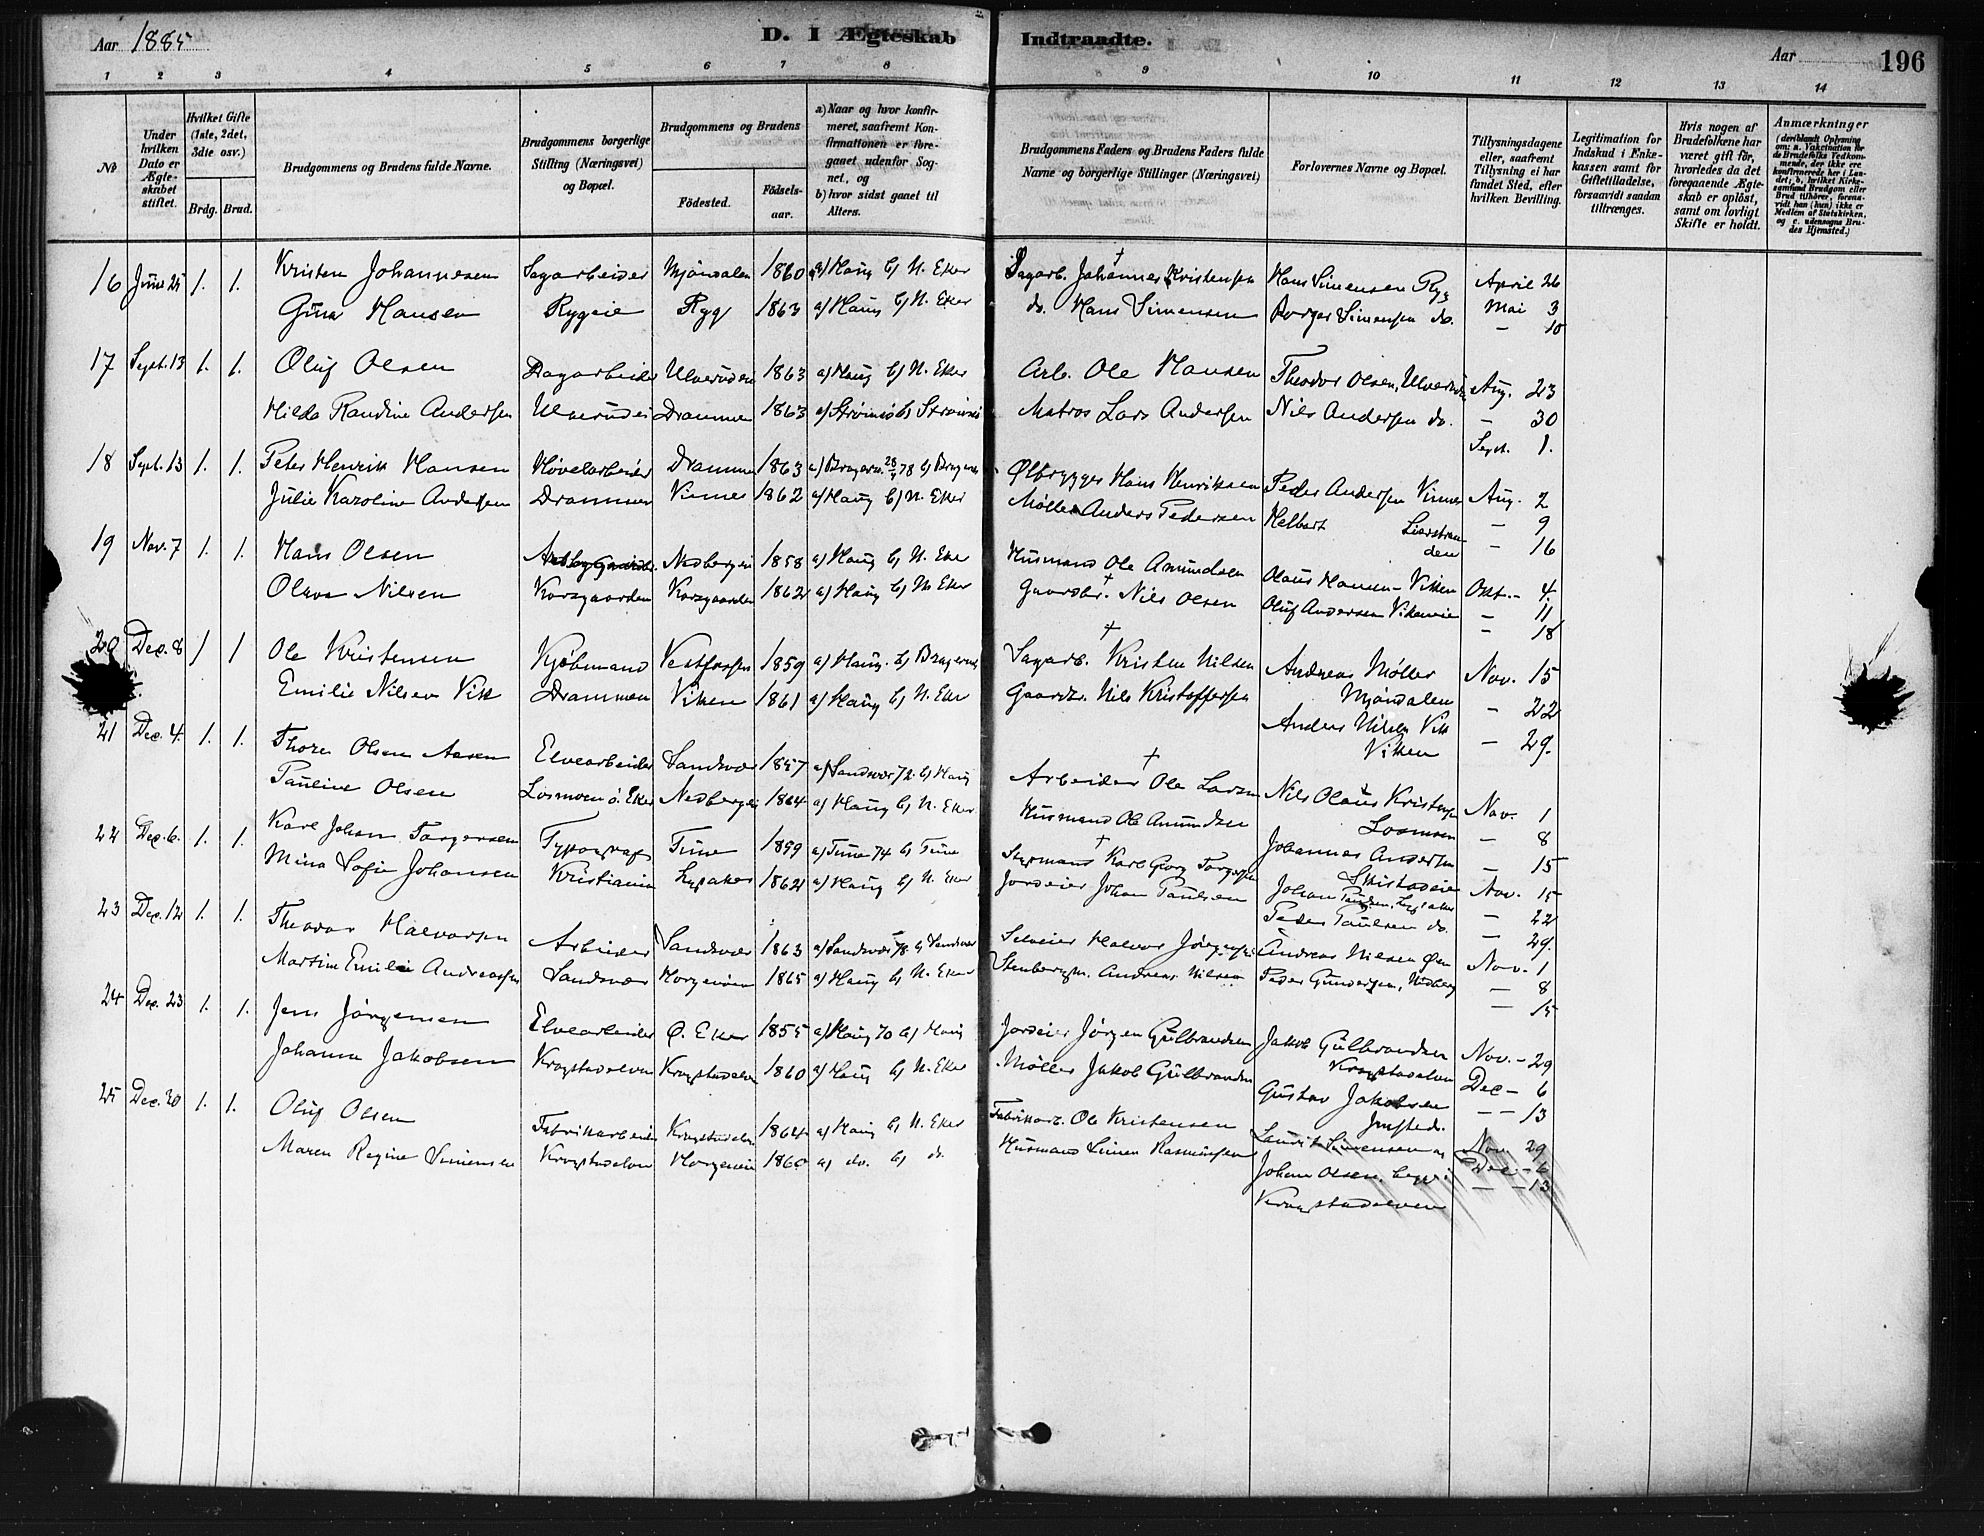 Aar 1885
D. I Ægteskab Indtraadte.
Aar
196
1 2 3 4 5 6 7 8 9 10 11 12 13 14
No
Under hvilken Dato er Ægteskabet stiftet.
Hvilket Gifte (1ste, 2det, 3die osv.)
Brdg. Brud.
Brudgommens og Brudens fulde Navne.
Brudgommens borgerlige Stilling (Næringsvei) og Bopæl.
Brudgommens og Brudens
Födested.
Födselsaar.
a) Naar og hvor konfirmeret, saafremt Konfirmationen er foregaaet udenfor Sognet, og
b) hvor sidst gaaet til Alters.
Brudgommens Faders og Brudens Faders fulde Navne og borgerlige Stillinger (Næringsvei)
Forlovernes Navne og Bopæl.
Tillysningsdagene eller, saafremt Tillysning ei har fundet Sted, efter hvilken Bevilling.
Legitimation for Indskud i Enkekassen samt for Giftetilladelse, forsaavidt saadan tiltrænges.
Hvis nogen af Brudefolkene har været gift før, hvorledes da det foregaaende Ægteskab er oplöst, samt om lovligt Skifte er holdt.
Anmærkninger
(deriblandt Oplysning om: a. Vakcination for de Brudefolks Vedkommende, der ikke ere konfirmerede her i Landet; b, hvilket Kirkesamfund Brudgom eller Brud tilhører, forsaavidt han (hun) ikke er Medlem af Statskirken, og c. udensogns Brudes Hjemsted.)
16 Juni 25 1. 1. Kristen Johannesen Sagarbeider Mjöndalen 1860 a) Haug b) N. Eker Sagarb. † Johannes Kristensen Hans Simensen Ryg April 26
Gina Hansen Rygeie Ryg 1863 a) Haug b) N. Eker do. Hans Simensen Borger Simensen do. Mai 3
— 10
17 Sept. 13 1. 1. Oluf Olsen Dagarbeider Ulverudei 1863 a) Haug b) N. Eker Arb. Ole Hansen Theodor Olsen, Aug. 23
Hilda Randine Andersen Ulverudei Drammen 1863 a) Strömsö b) Strömsö Matros Lars Andersen Nils Andersen do. — 30
Sept. 1.
18 Sept. 13 1. 1. Peter Henrik Hansen Hövelarbeider Drammen 1863 a) 78 b) Ølbrygger Hans Henriksen Peder Andersen Vinnes Aug. 2
Julie Karoline Andersen Drammen Vinnes 1862 a) Haug b) N. Eker Møller Anders Pedersen — 9
— 16
19 Nov. 7 1. 1. Hans Olsen Nedbergei 1858 a) Haug b) N. Eker Husmand Ole Amundsen Olaus Hansen – Vikken Okt. – 4.
Olava Nilsen Korsgaarden Korsgaarden 1862 a) Haug b) N. Eker Gaardbr. † Nils Olsen Oluf Andersen Vikeneie — 11
— 18
20 Dec. 8 1 1 Ole Kristensen Kjöbmand Vestfossen 1859 a) Haug. b) Bragernes Sagarb. † Kristen Nilsen Andreas Møller Nov. 15
Emilie Nilsen Vik Drammen Vikken 1861 a) Haug b) N. Eker Gaardbr. Nils Kristoffersen Mjöndalen — 22
Anders Nilsen Vik
Vikken — 29.
21 Dec. 4. 1. 1. Thore Olsen Aasen Elvearbeider Sandsvær 1857 a) Sandsvær 72. b) Haug Arbeider † Ole Larsen Nils Olaus Kristensen Nov. 1
Pauline Olsen Losmoen ö. Eker Nedbergei 1864 a) Haug b) N. Eker Husmand Ole Amundsen Losmoen — 8
Johannes Andersen — 15
22 Dec. 6. 1. 1. Karl Johan Torgersen Typograf Tune 1859 a) Tune 74 b) Tune Styrmand † Karl Georg Torgersen Nov. 15
Mina Sofie Johansen Kristiania Lysaker 1862 a) Haug b) N. Eker Jordeier Johan Paulsen Johan Paulsen, Lysaker — 22
Peder Paulsen do. — 29.
23 Dec. 12 1. 1. Theodor Halvorsen Arbeider Sandsvær 1863 a) Sandsvær 78 b) Sandsvær Selveier Halvor Jörgensen Andreas Nilsen Nov. 1
Martine Emilie Andreassen Sandsvær Horgenöien 1865 a) Haug b) N. Eker Stenbergm. Andreas Nilsen Peder Gundersen, Nedberg — 8
— 15
24 Dec. 23 1. 1. Jens Jörgensen Elvearbeider Ö. Eker 1855 a) Haug 70 b) Haug Jordeier Jörgen Gulbrandsen Jakob Gulbrandsen Nov. – 29
Johanne Jakobsen Krogstadelven Krogstadelven 1860 a) Haug b) N. Eker Møller Jakob Gulbrandsen Krogstadelven Dec – 6
Gustav Jakobsen — – 13
25 Dec. 30 1. 1. Oluf Olsen Fabrikarbeider Krogstadelven 1864 a) Haug b) N. Eker Fabrikarb. Ole Kristensen Laurits Simensen Nov. 29
Maren Regine Simensen Krogstadelven Horgeneie 1860 a) do. b) d. Husmand Simen Rasmussen Johan Olsen, Dec – 6
Krogstadelven — – 13